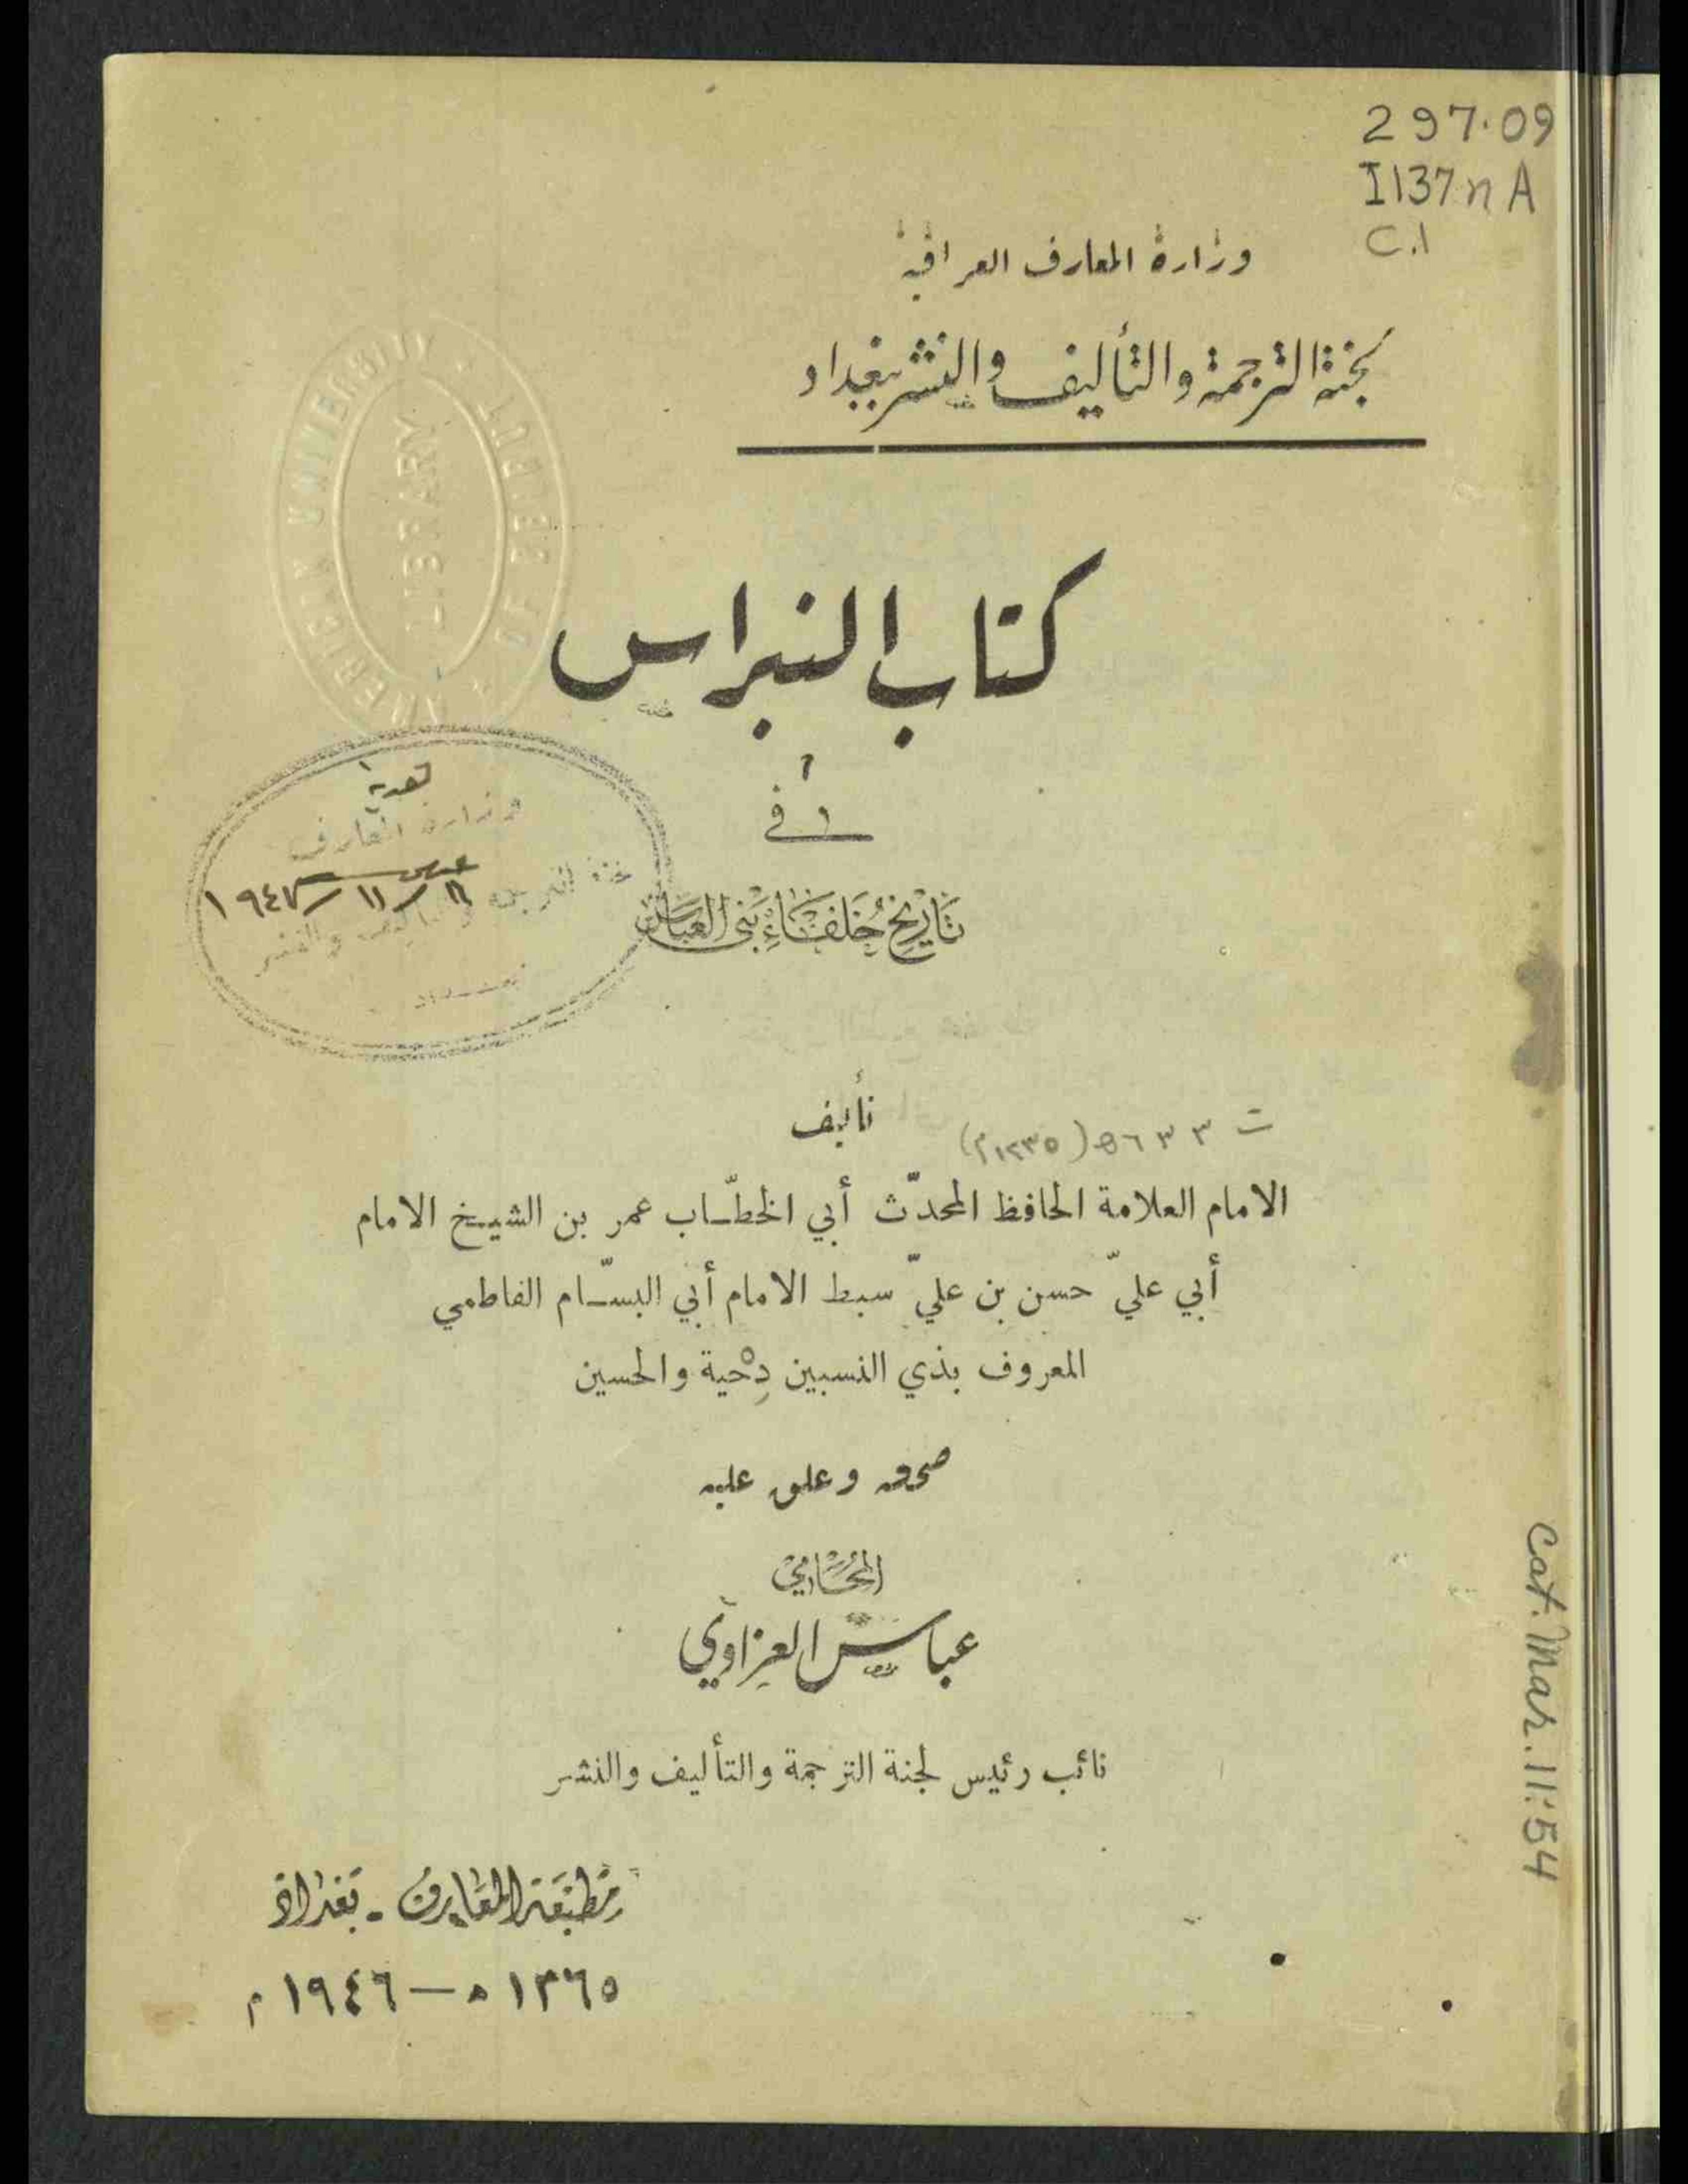 297.09
I137nA
C.1
وزارة المعارف العراقية
لجنة الترجمة والتأليف والنشر ببغداد
AMERICAN UNIVERSITY OF BEIRUT
LIBRARY
كتاب النبراس
في
تاريخ خلفاء بني العباس
وزارة المعارف
١٩٤٧/١١/
والتأليف والنشر
بغداد
تأليف
ت ٦٣٣ ه (١٢٣٥م)
الامام العلامة الحافظ المحدّث أبي الخطّاب عمر بن الشيخ الامام
أبي عليّ حسن بن عليّ سبط الامام أبي البسّام الفاطمي
المعروف بذي النسبين دِحْية والحسين
صححه وعلق عليه
المحامي
عباس العزاوي
نائب رئيس لجنة الترجمة والتأليف والنشر
مطبعة المعارف - بغداد
١٣٦٥ ه — ١٩٤٦ م
Cat. Mar. 11:54